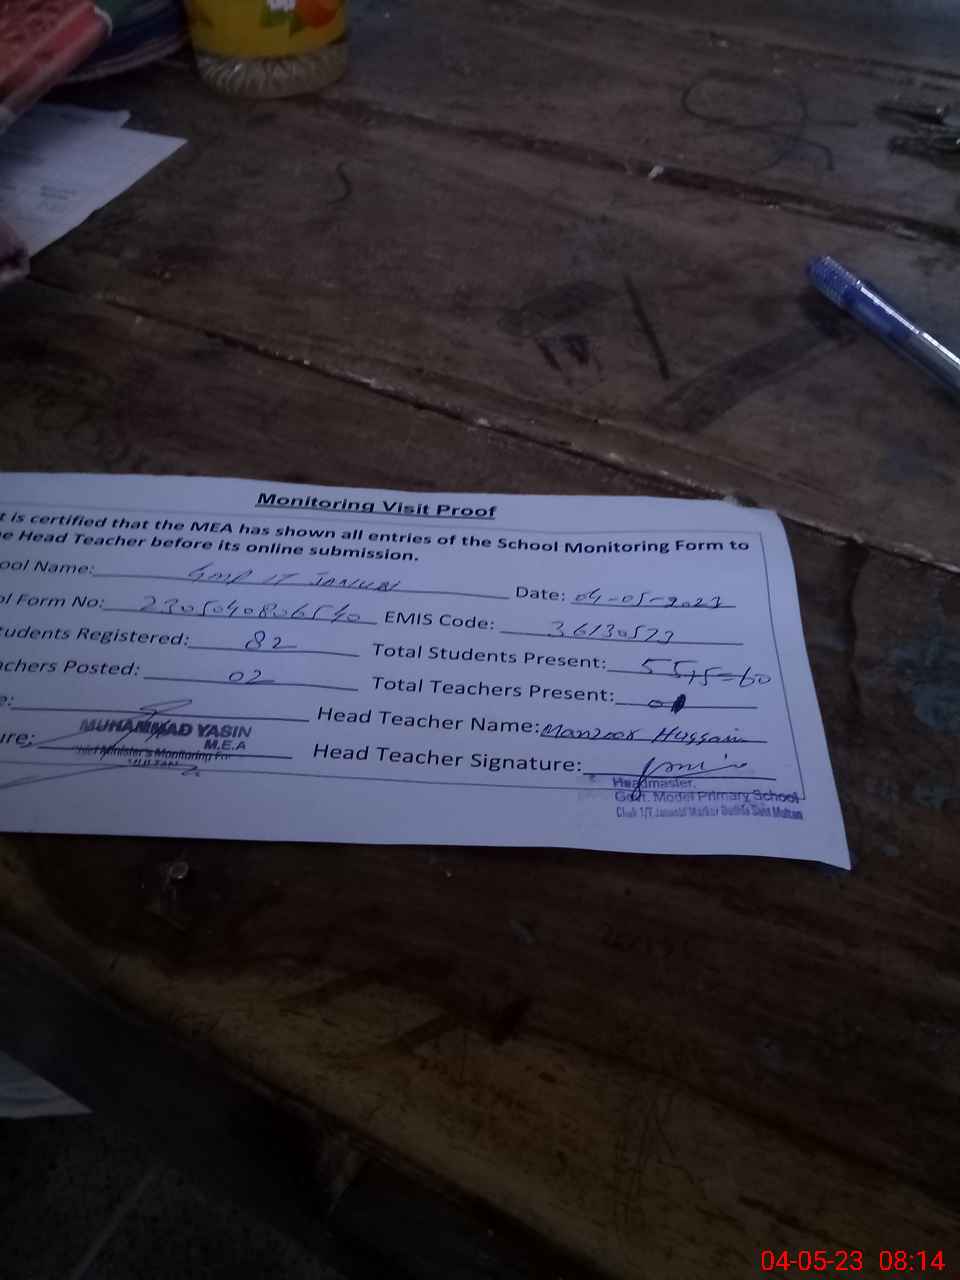 Monitoring Visit Proof
t is certified that the MEA has shown all entries of the School Monitoring Form to
e Head Teacher before its online submission.
ool Name: Date: 04-05-2023
ol Form No: 2305040806540 EMIS Code: 36130523
tudents Registered: 82 Total Students Present: 55+5=60
achers Posted: 02 Total Teachers Present:
e: Head Teacher Name: Manzoor Hussain
MUHAMMAD YASIN
M.E.A
ure: Head Teacher Signature:
Chief Minister's Monitoring For
MULTAN
Headmaster,
Govt. Model Primary School
Multan
04-05-23 08:14